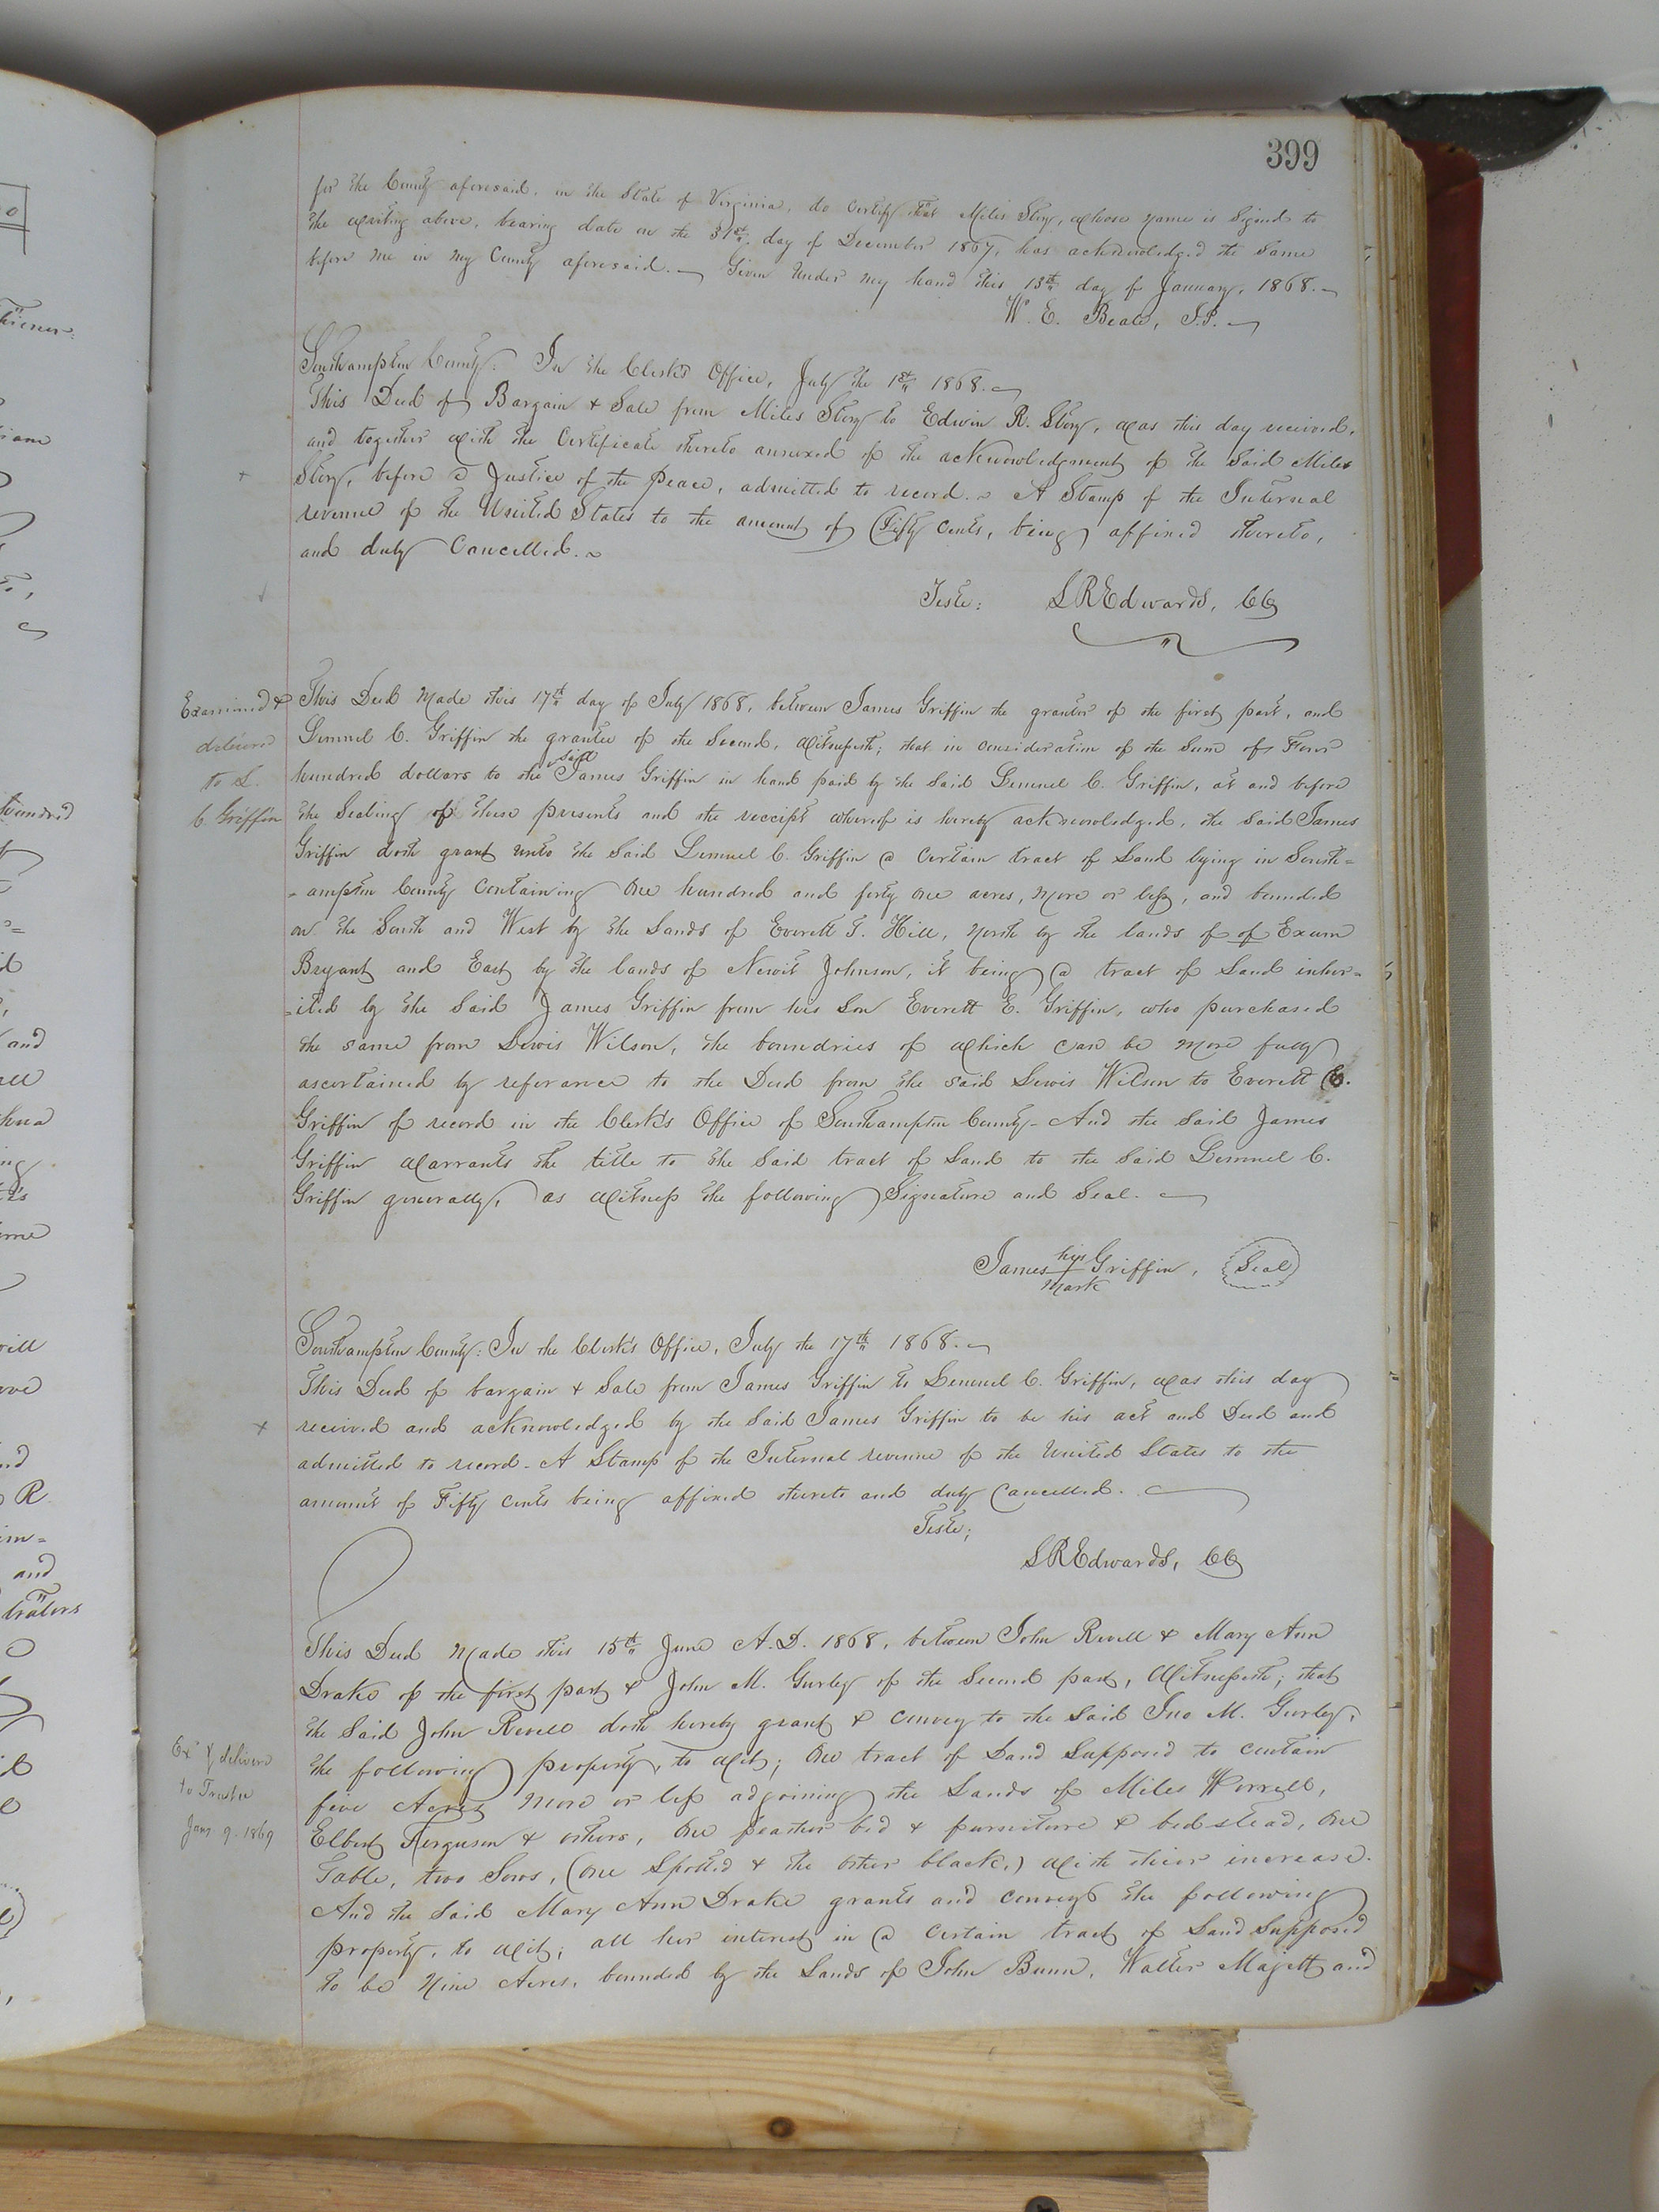 399
for the County aforesaid, in the State of Virginia, do certify that Miles Story, whose name is signed to
the writing above, bearing date on the 31st day of December 1867, has acknowledged the same
before me in my County aforesaid. Given under my hand this 13th day of January, 1868.
W. E. Beale, J.P.
Southampton County: In the Clerk's Office, July the 1st 1868.
This Deed of Bargain & Sale from Miles Story to Edwin R. Story, was this day received,
and together with the Certificate thereto annexed of the acknowledgment of the said Miles
Story, before a Justice of the Peace, admitted to record. A Stamp of the Internal
revenue of the United States to the amount of Fifty cents, being affixed thereto,
and duly Cancelled.
Teste: L R Edwards, CC
Examined &
delivered
to L.
C. Griffin
This Deed made this 17th day of July 1868, between James Griffin the grantor of the first part, and
Lemuel C. Griffin the grantee of the Second, Witnesseth; that in consideration of the Sum of Four
hundred dollars to the said James Griffin in hand paid by the said Lemuel C. Griffin, at and before
the Sealing of these presents and the receipt whereof is hereby acknowledged, the said James
Griffin doth grant unto the said Lemuel C. Griffin a certain tract of Land lying in South=
=ampton County Containing One hundred and forty one acres, more or less, and bounded
on the South and West by the Lands of Everett T. Hill, North by the lands of of Exum
Bryant and East by the lands of Newit Johnson, it being a tract of Land inher=
=ited by the said James Griffin from his son Everett E. Griffin, who purchased
the same from Lewis Wilson, the boundries of which can be more fully
ascertained by referance to the Deed from the said Lewis Wilson to Everett E.
Griffin of record in the Clerk's Office of Southampton County- And the said James
Griffin Warrants the title to the said tract of Land to the said Lemuel C.
Griffin generally, as Witness the following Signature and Seal.
James his mark Griffin, Seal
Southampton County: In the Clerk's Office, July the 17th 1868.
This Deed of bargain & Sale from James Griffin to Lemuel C. Griffin, was this day
received and acknowledged by the said James Griffin to be his act and Deed and
admitted to record- A Stamp of the Internal revenue of the United States to the
amount of Fifty cents being affixed thereto and duly Cancelled.
Teste;
L R Edwards, CC
Exd & delivered
to Trustee
Jany 9. 1869
This Deed made this 15th June A.D. 1868, between John Revell & Mary Ann
Drake of the first part & John M. Gurley of the Second part, Witnesseth; that
the said John Revell doth hereby grant & convey to the said Jno M. Gurley,
the following property, to wit; One tract of Land Supposed to contain
five Acres more or less adjoining the Lands of Miles Worrell,
Elbert Ferguson & others, One feather bed & furniture & bedstead, One
Table, two Sows, (one Spotted & the other black,) with their increase.
And the said Mary Ann Drake grants and conveys the following
property, to wit; all her interest in a certain tract of Land Supposed
to be Nine Acres, bounded by the Lands of John Bunn, Walter Majett and